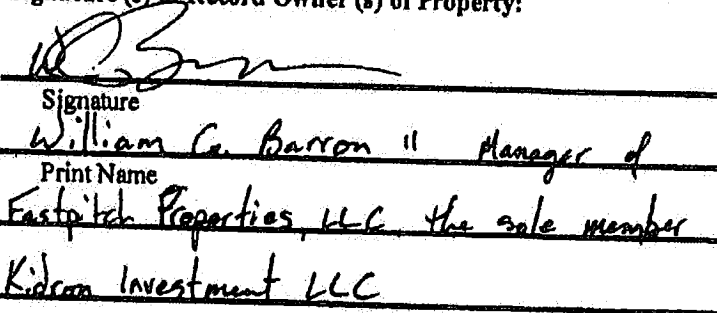 Record Owner (s) of Property:
Signature
William G. Barron II Manager of
Print Name
Fastpitch Properties, LLC the sole member
Kidron Investment LLC